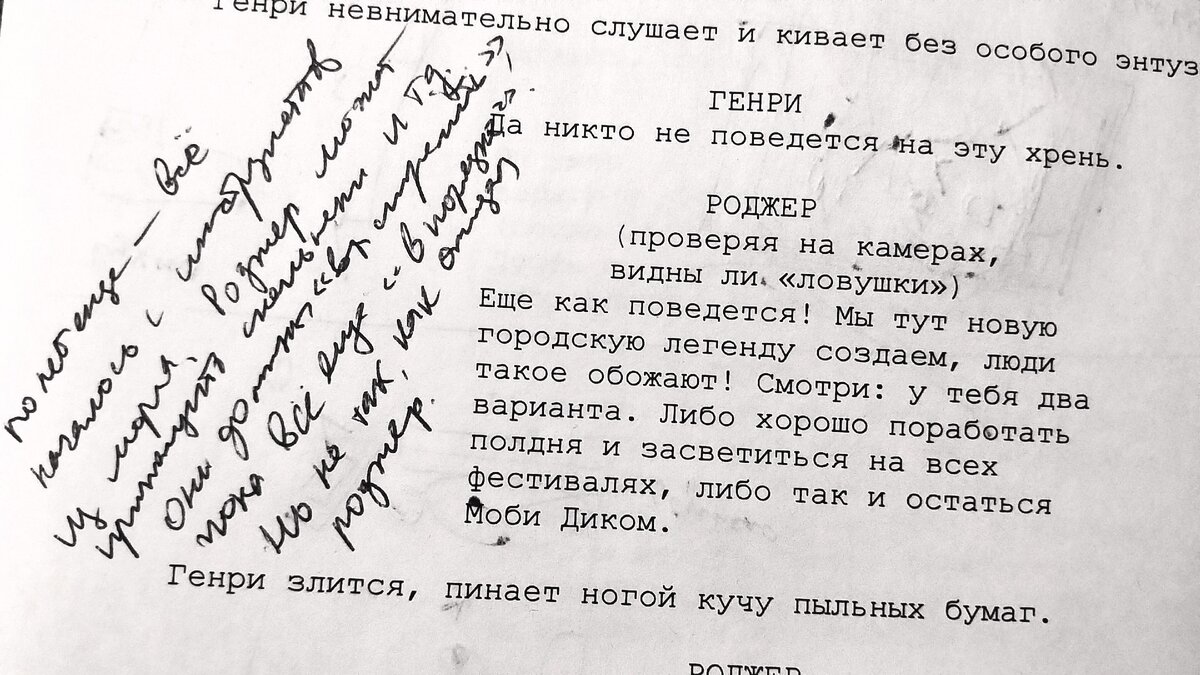 Генри невнимательно слушает и кивает без особого энтуз
ГЕНРИ
Да никто не поведется на эту хрень.
РОДЖЕР
(проверяя на камерах,
видны ли «ловушки»)
Еще как поведется! Мы тут новую
городскую легенду создаем, люди
такое обожают! Смотри: у тебя два
варианта. Либо хорошо поработать
полдня и засветиться на всех
фестивалях, либо так и остаться
Моби Диком.
Генри злится, пинает ногой кучу пыльных бумаг.
РОДЖЕР
по легенде — всё
началось с
из моря. Роджер может
и тд.
Они должны «
пока всё еще «в порядке»
Но не так, как
роджер.